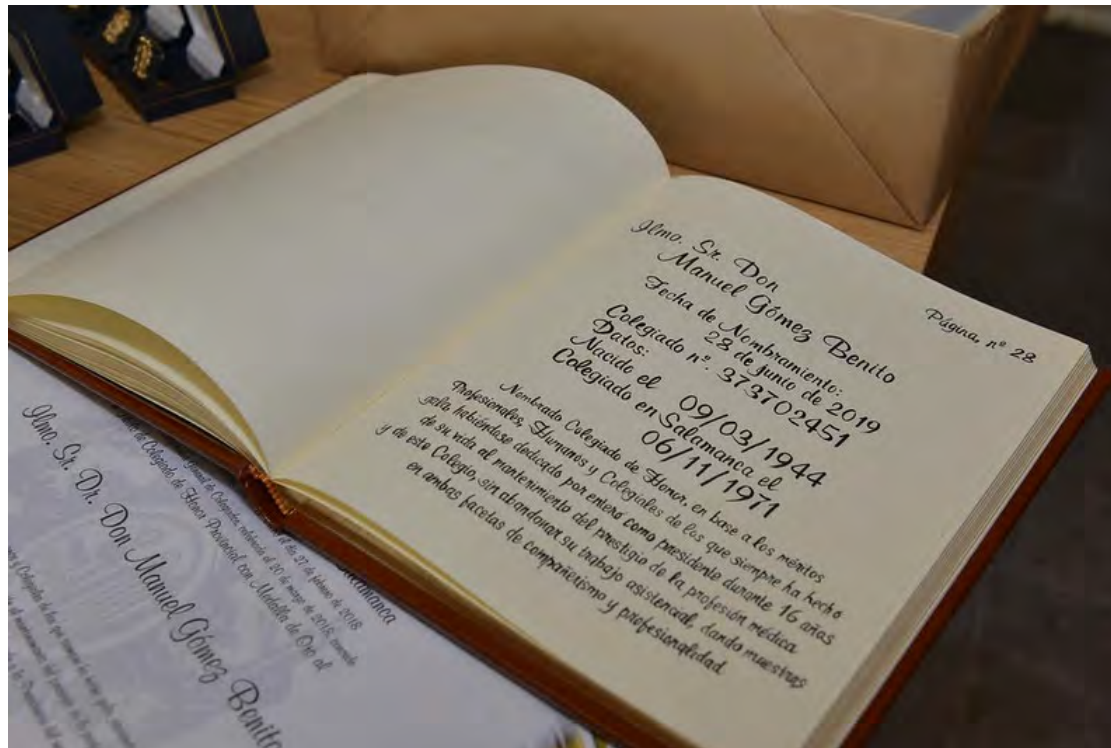 Ilmo. Sr. Don
Manuel Gómez Benito
Página, nº 28
Fecha de Nombramiento:
28 de junio de 2019
Colegiado nº. 373702451
Datos:
Nacido el 09/03/1944
Colegiado en Salamanca el
06/11/1971
Nombrado Colegiado de Honor, en base a los méritos
Profesionales, Humanos y Colegiales de los que siempre ha hecho
gala habiéndose dedicado por entero como presidente durante 16 años
de su vida al mantenimiento del prestigio de la profesión médica
y de este Colegio, sin abandonar su trabajo asistencial, dando muestras
en ambas facetas de compañerismo y profesionalidad
Salamanca
de Colegiados, celebrada el día 27 de
el 20 de marzo de 2018, acuerda
de Colegiado de Honor Provincial con Medalla de Oro al
Ilmo. Sr. Dr. Don Manuel Gómez Benito